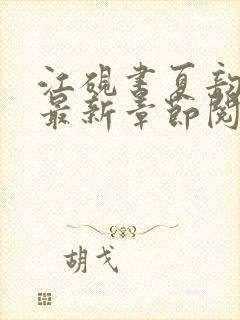 江砚书夏韵
最新章节阅
胡戈